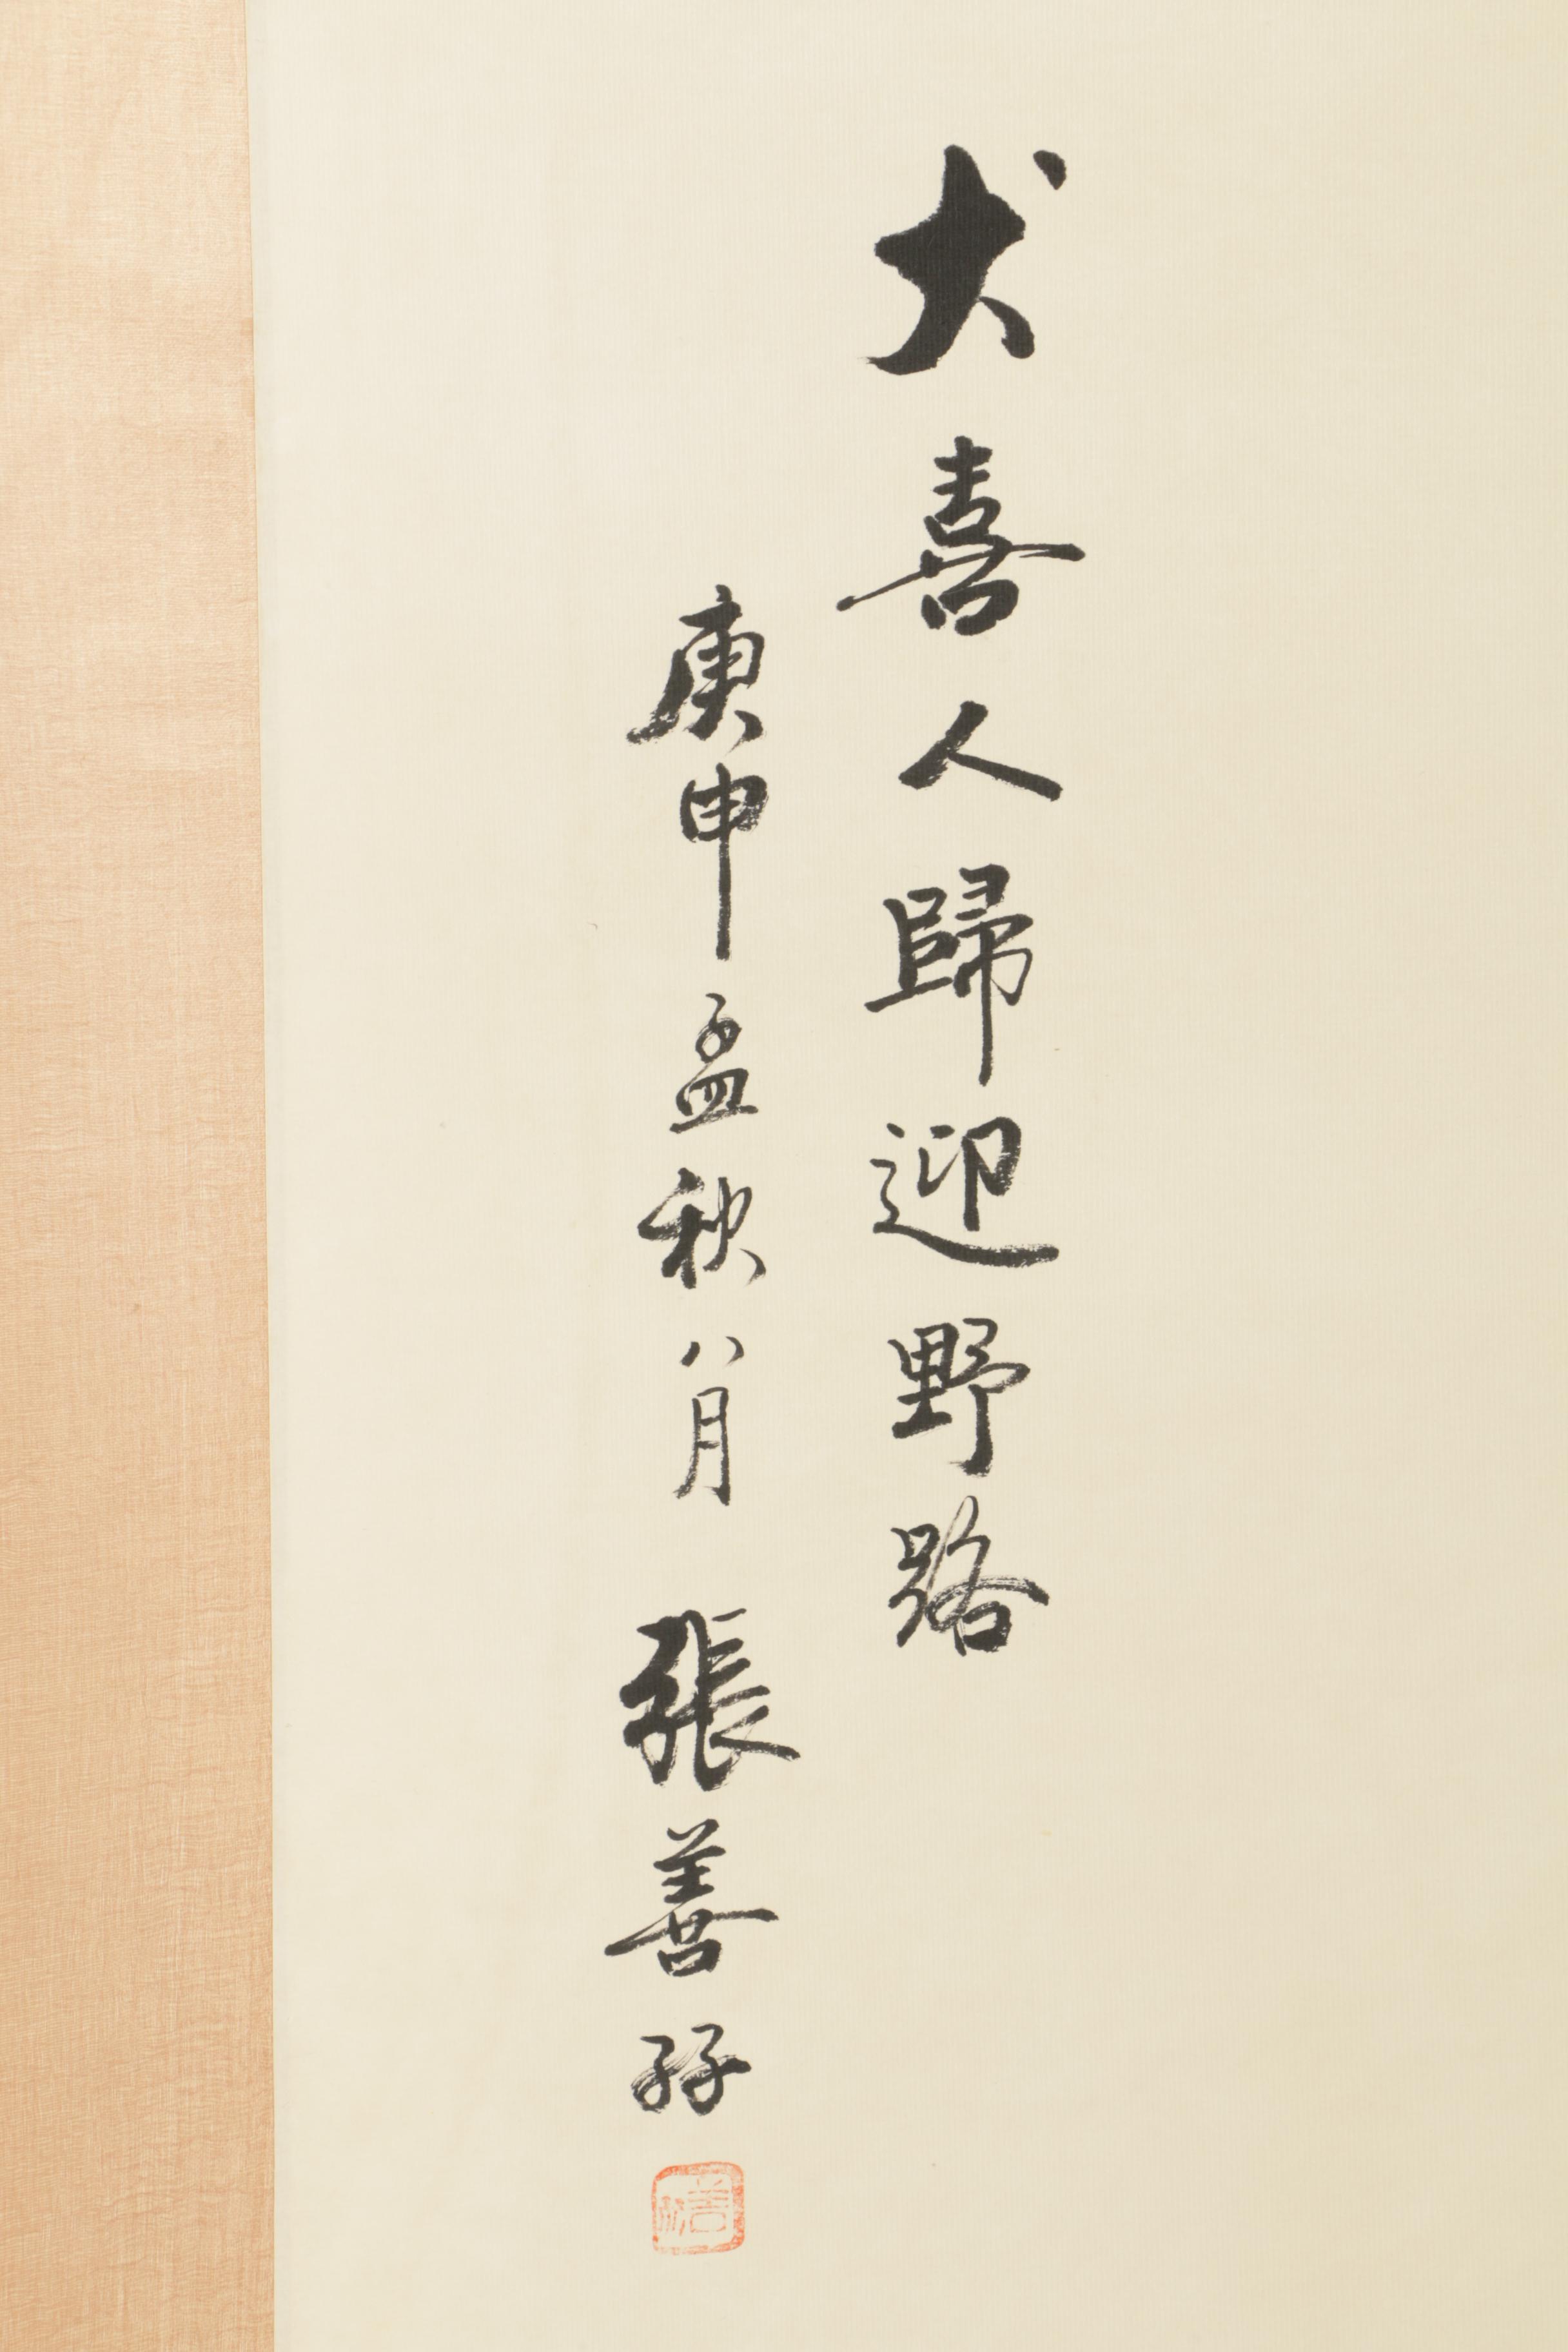 犬喜人歸迎野路
庚申孟秋八月 張善孖
善孖